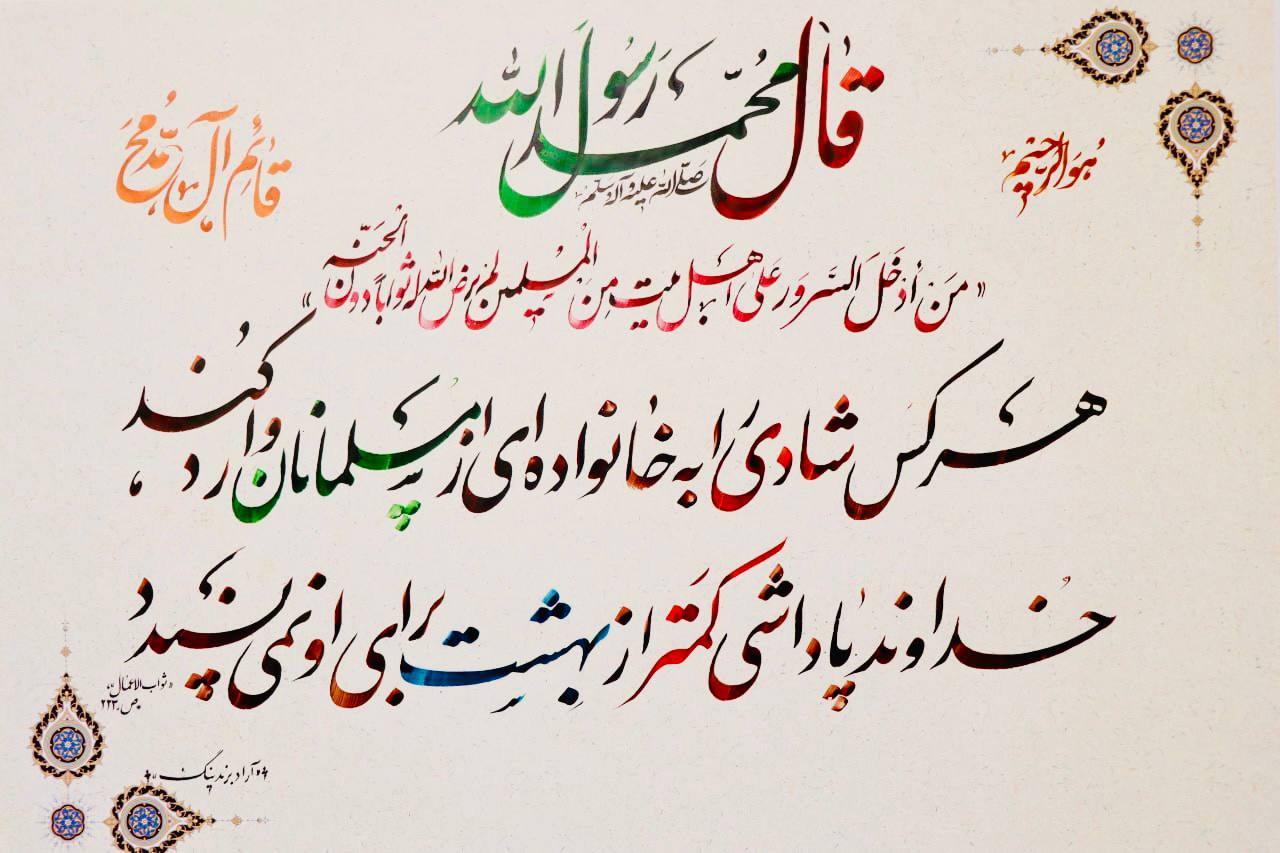 هُوَ الرحیم
قال محمد رَسول الله
صَلَّی الله علیه و آله و سلم
قائِم آل مُحَمَّد
«مَن أدخَلَ السَّرورَ عَلی أهل بیت مِن المُسلمین لم یَرضَ الله له ثواباً دون الجَنّه»
هر کس شادی را به خانواده ای از مسلمانان وارد کند،
خداوند پاداشی کمتر از بهشت برای او نمی پسندد
«ثواب الاعمال»، ص ۲۲۳
آراد برندینگ